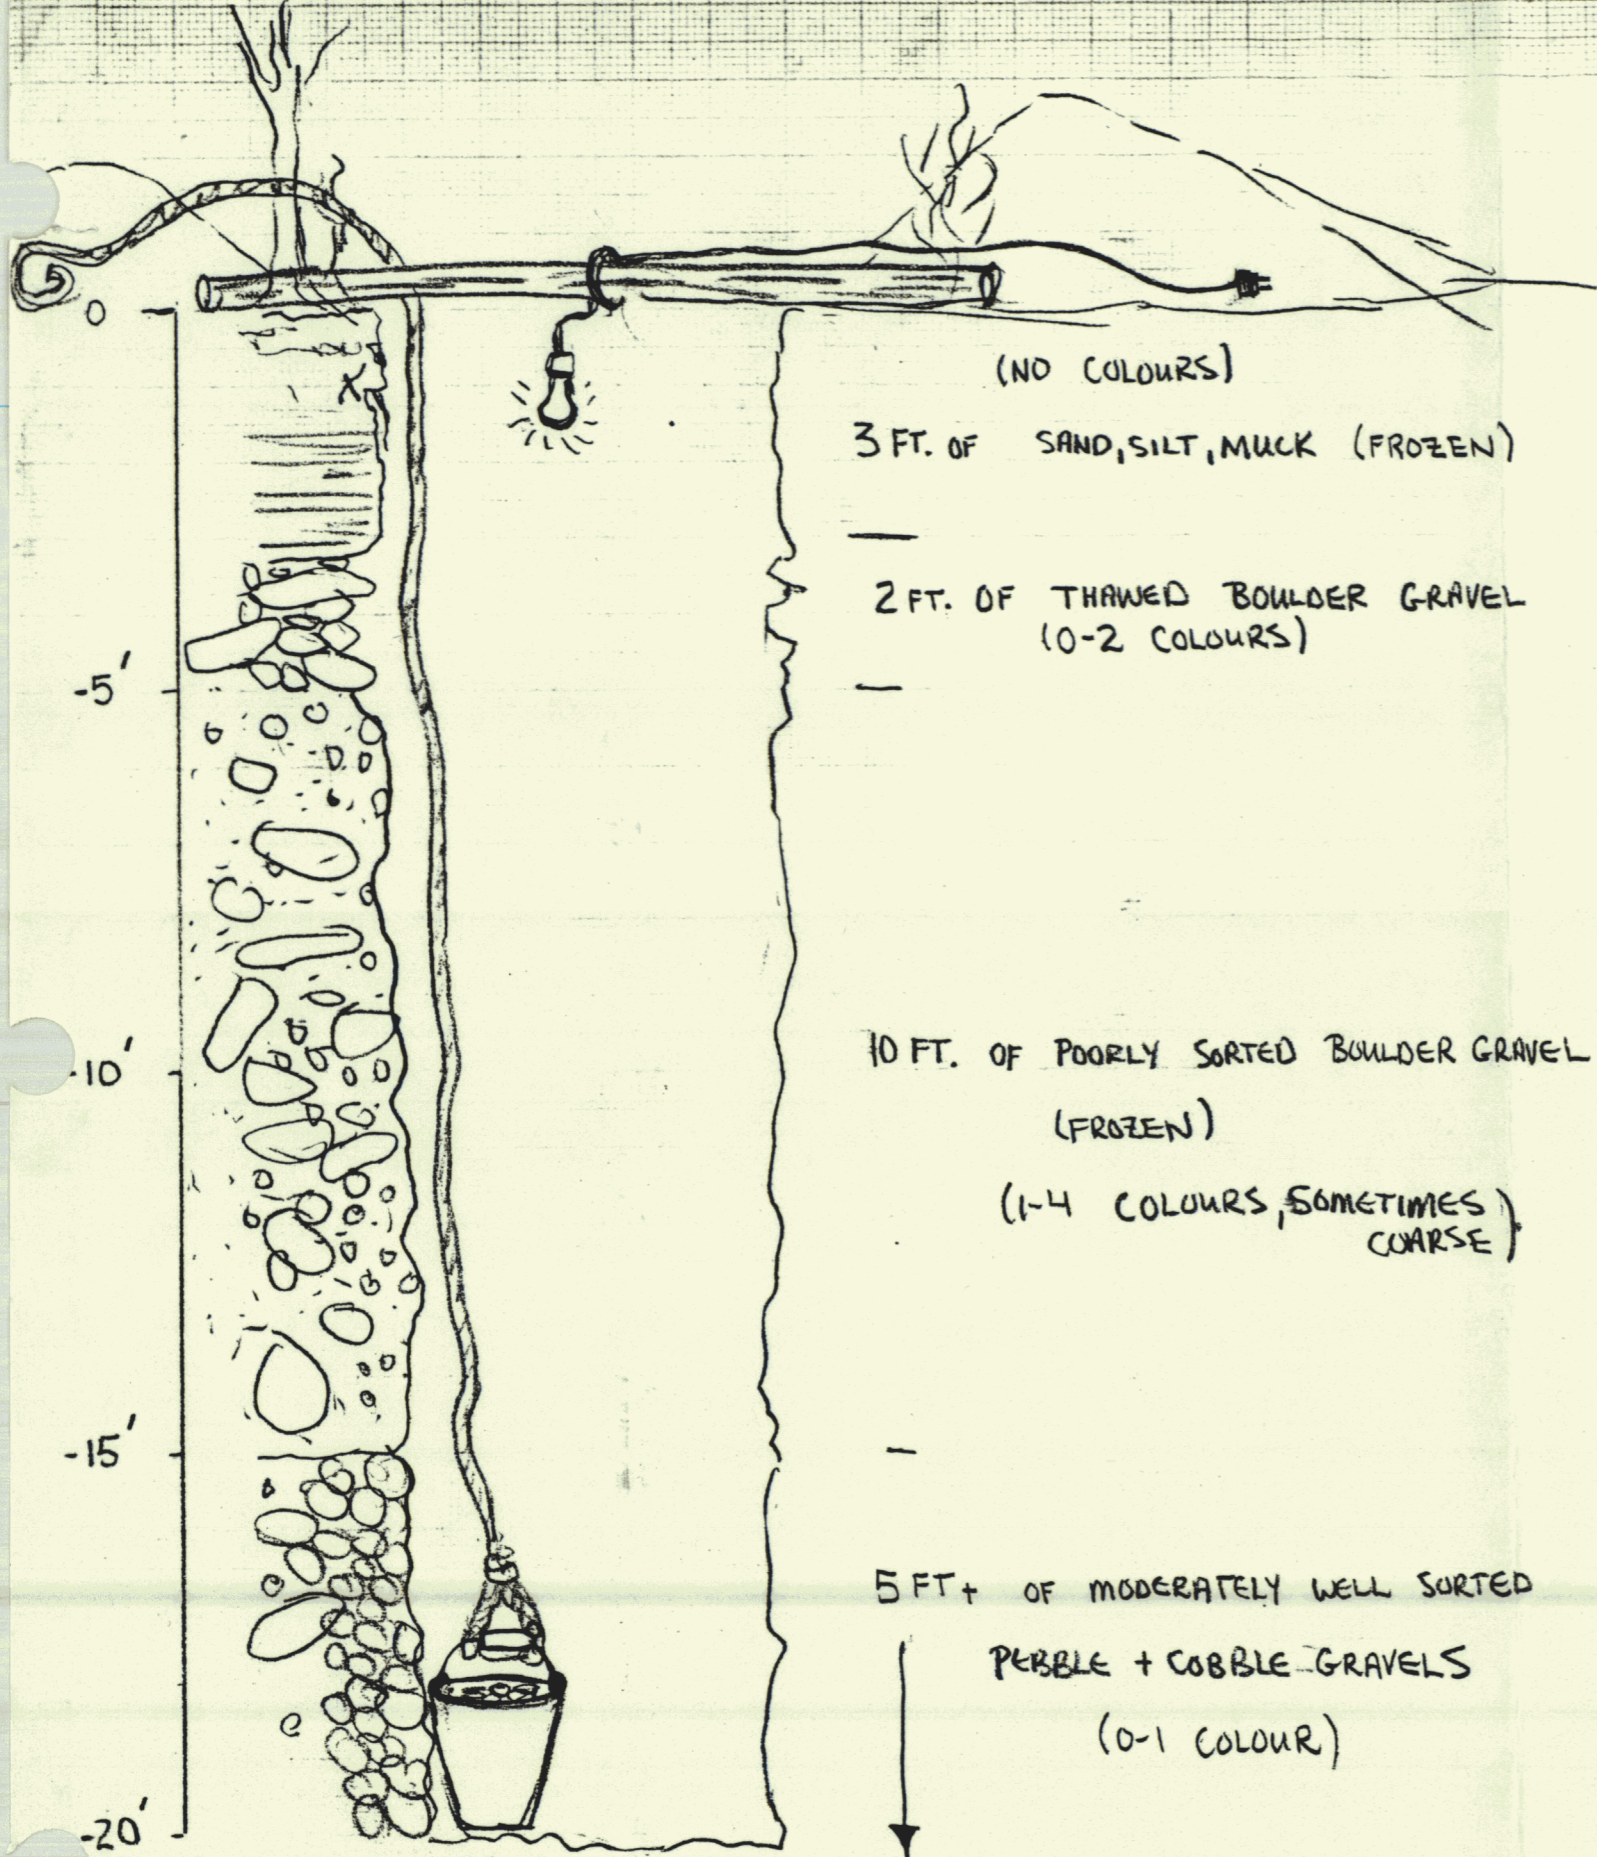 0
(NO COLOURS)
3 FT. OF SAND, SILT, MUCK (FROZEN)
2 FT. OF THAWED BOULDER GRAVEL
(0-2 COLOURS)
-5'
10 FT. OF POORLY SORTED BOULDER GRAVEL
-10'
(FROZEN)
(1-4 COLOURS, SOMETIMES
COARSE)
-15'
5 FT + OF MODERATELY WELL SORTED
PEBBLE + COBBLE GRAVELS
(0-1 COLOUR)
-20'